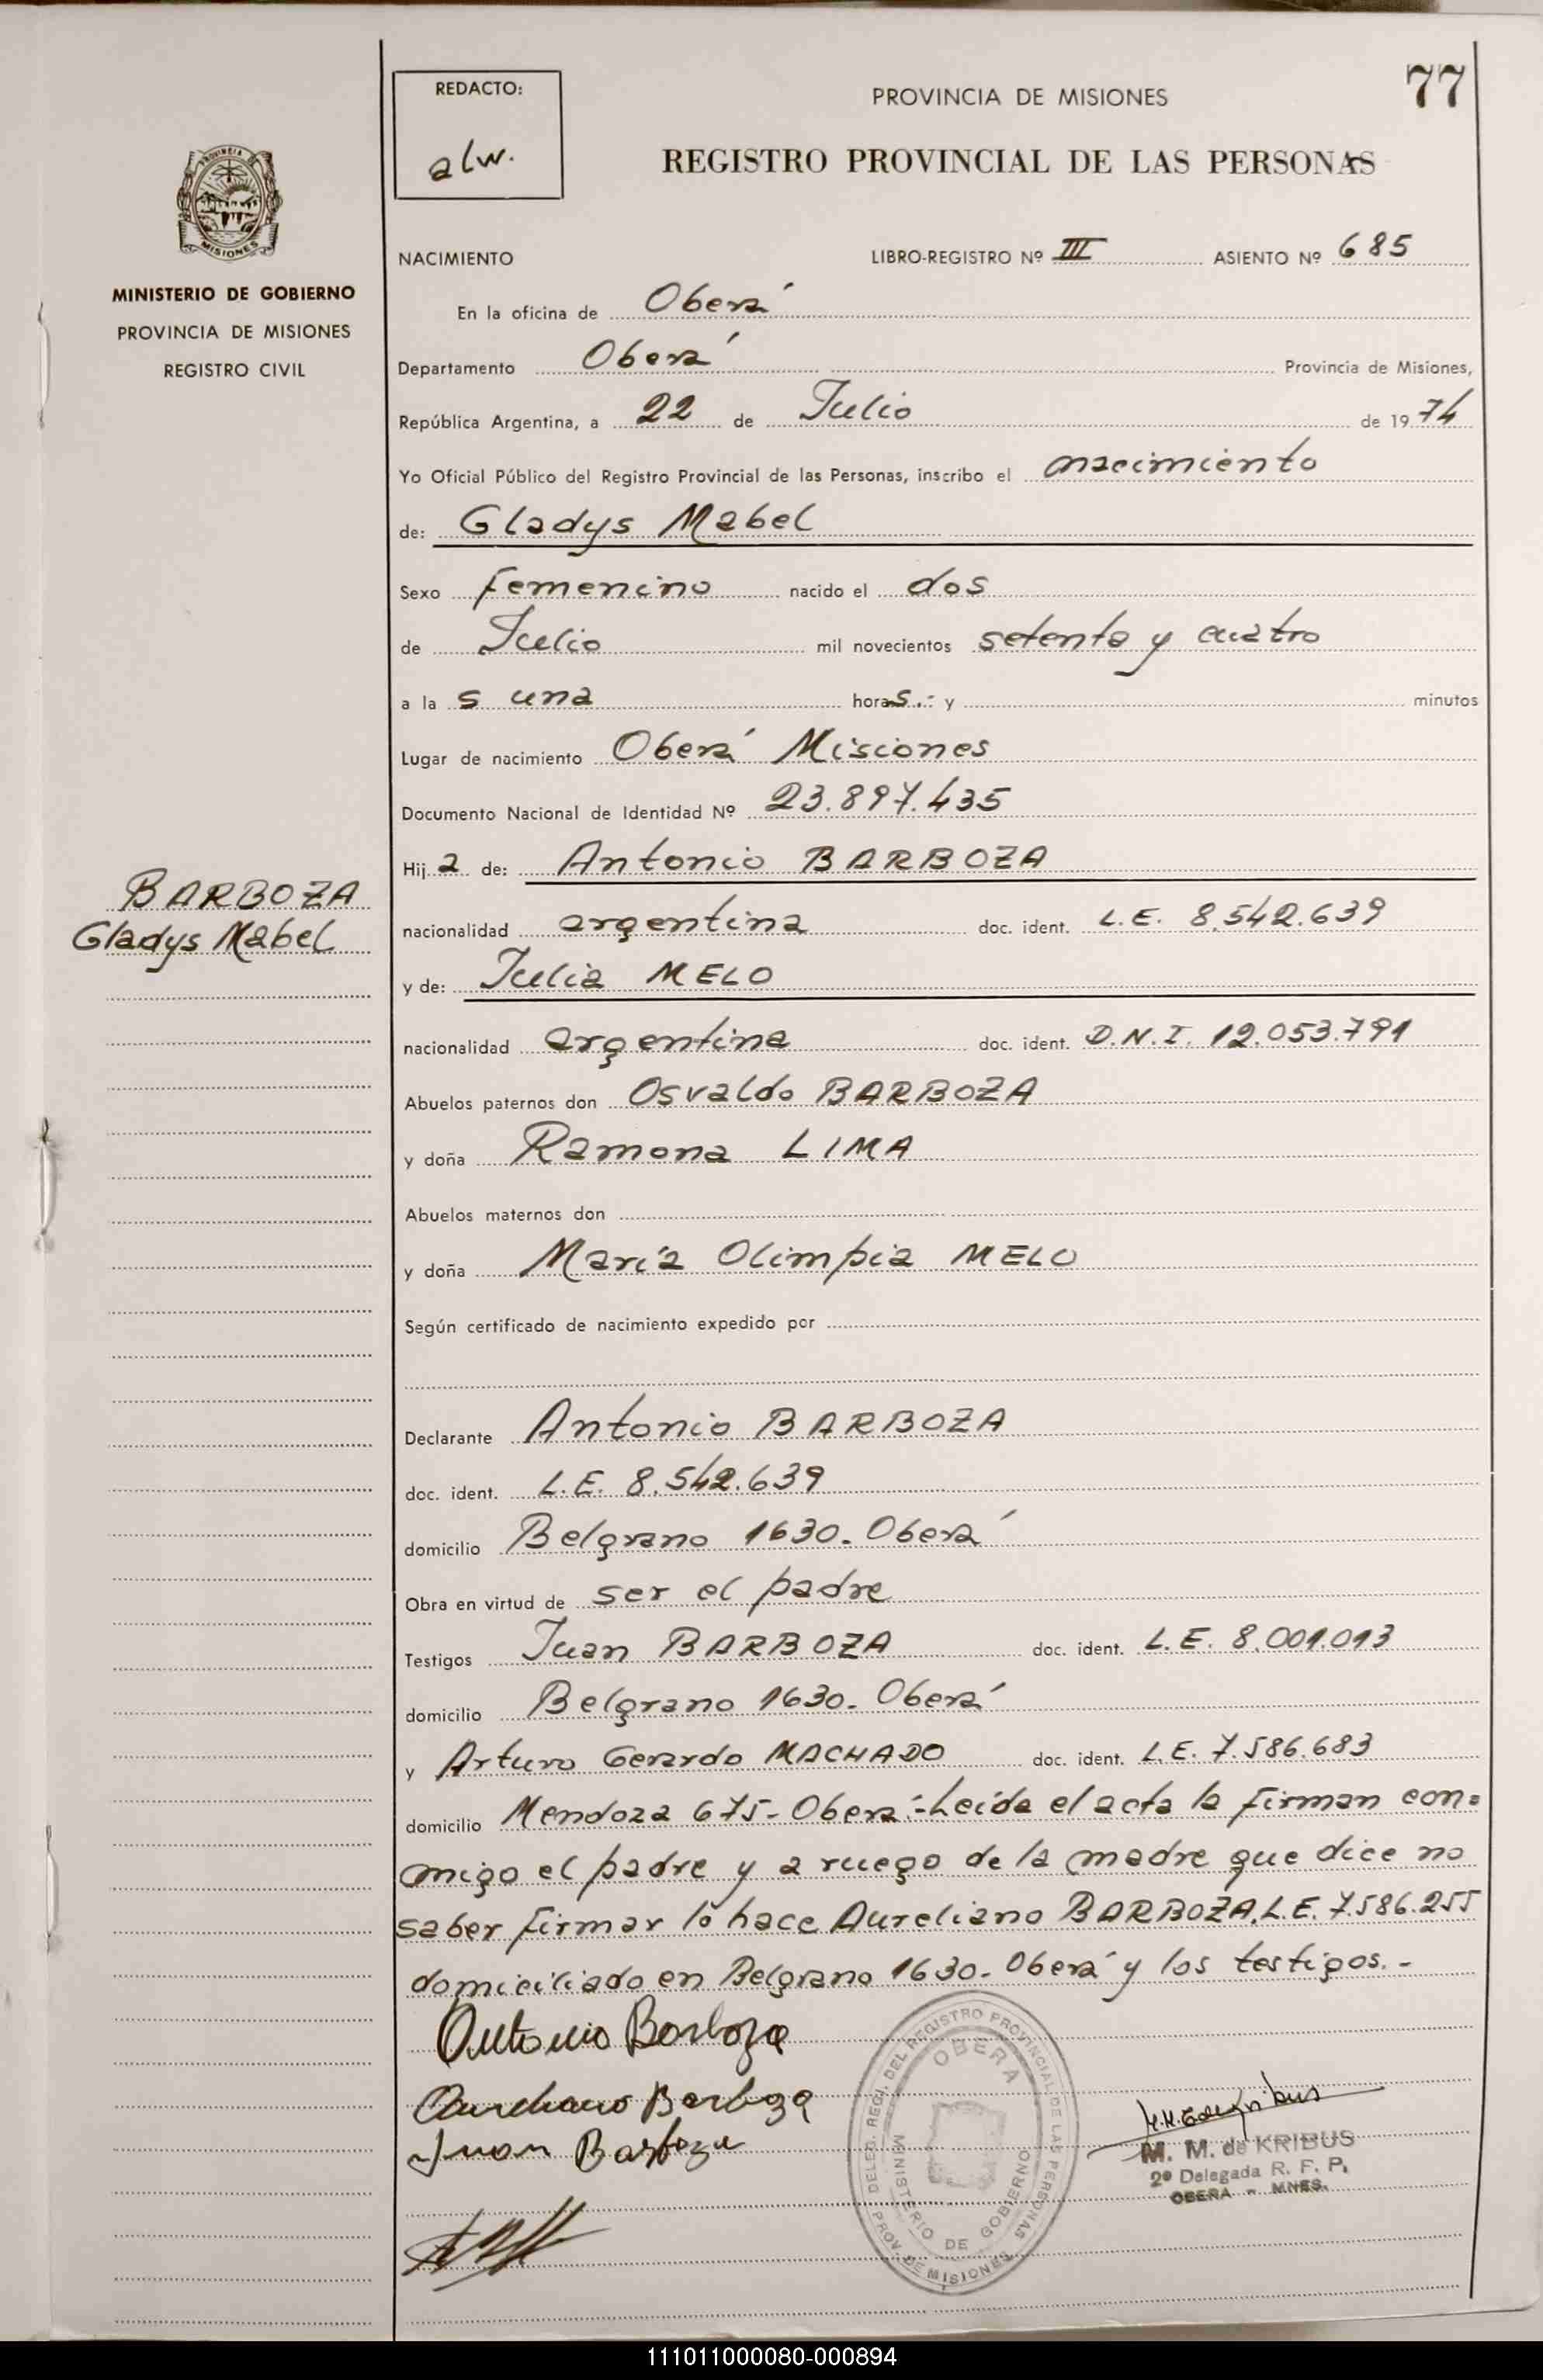 77
REDACTO:
alw.
PROVINCIA DE MISIONES
REGISTRO PROVINCIAL DE LAS PERSONAS
PROVINCIA
MISIONES
MINISTERIO DE GOBIERNO
PROVINCIA DE MISIONES
REGISTRO CIVIL
NACIMIENTO LIBRO-REGISTRO Nº III ASIENTO Nº 685
En la oficina de Oberá
Departamento Oberá Provincia de Misiones,
República Argentina, a 22 de Julio de 1974
Yo Oficial Público del Registro Provincial de las Personas, inscribo el nacimiento
de: Gladys Mabel
Sexo femenino nacido el dos
de Julio mil novecientos setenta y cuatro
a las una horas.- y minutos
Lugar de nacimiento Oberá Misiones
Documento Nacional de Identidad Nº 23.897.435
Hija de: Antonio BARBOZA
BARBOZA
Gladys Mabel
nacionalidad argentina doc. ident. L.E. 8.542.639
y de: Julia MELO
nacionalidad argentina doc. ident. D.N.I. 12.053.791
Abuelos paternos don Osvaldo BARBOZA
y doña Ramona LIMA
Abuelos maternos don
y doña María Olimpia MELO
Según certificado de nacimiento expedido por
Declarante Antonio BARBOZA
doc. ident. L.E. 8.542.639
domicilio Belgrano 1630. Oberá
Obra en virtud de ser el padre
Testigos Juan BARBOZA doc. ident. L.E. 8.001.013
domicilio Belgrano 1630. Oberá
y Arturo Gerardo MACHADO doc. ident. L.E. 7.586.683
domicilio Mendoza 675- Oberá.-Leída el acta la firman con=
migo el padre y a ruego de la madre que dice no
saber firmar lo hace Aureliano BARBOZA, L.E. 7.586.255
domiciliado en Belgrano 1630. Oberá y los testigos.-
Antonio Barboza
Aureliano Barboza
Juan Barboza
DELEG. REGI. DEL REGISTRO PROVINCIAL DE LAS PERSONAS
OBERA
MINISTERIO DE GOBIERNO
PROV. DE MISIONES
M. M. de KRIBUS
2º Delegada R. F. P.
OBERA - MNES.
111011000080-000894